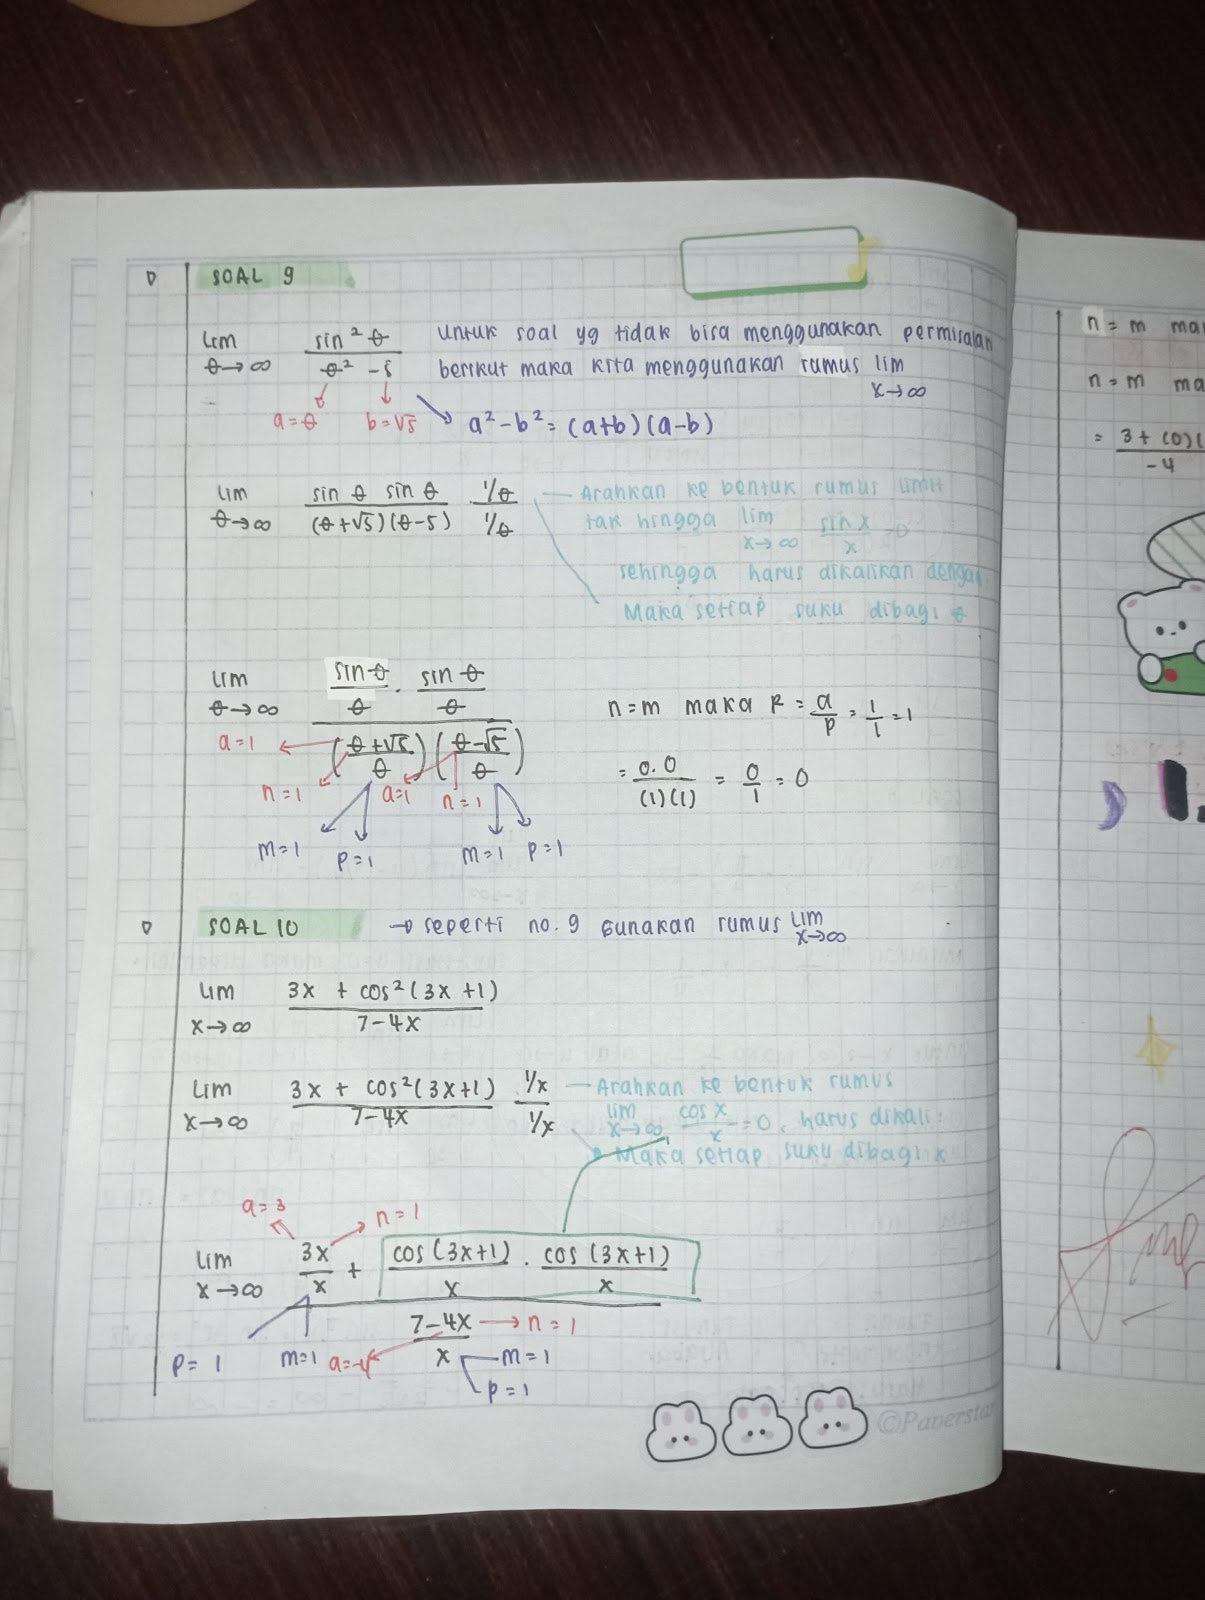 SOAL 9
lim θ→∞ sin² θ / θ² - 5 untuk soal yg tidak bisa menggunakan permisalan
berikut maka kita menggunakan rumus lim x→∞
a=θ b=√5 a²-b²=(a+b)(a-b)
lim θ→∞ sin θ sin θ / (θ+√5)(θ-5) · 1/θ / 1/θ — Arahkan ke bentuk rumus limit
tak hingga lim x→∞ sin x / x = 0
sehingga harus dikalikan dengan
Maka setiap suku dibagi θ
lim θ→∞ sin θ / θ · sin θ / θ
a=1 (θ+√5 / θ) (θ-√5 / θ)
n=1 a=1 n=1
m=1 p=1 m=1 p=1
n=m maka R = a/p = 1/1 = 1
= 0.0 / (1)(1) = 0/1 = 0
SOAL 10 → seperti no. 9 Gunakan rumus lim x→∞
lim x→∞ 3x + cos²(3x+1) / 7-4x
lim x→∞ 3x + cos²(3x+1) / 7-4x · 1/x / 1/x — Arahkan ke bentuk rumus
lim x→∞ cos x / x = 0, harus dikali
Maka setiap suku dibagi x
a=3 n=1
lim x→∞ 3x / x + cos(3x+1) / x · cos(3x+1) / x
7-4x / x → n=1
p=1 m=1 a=-4 m=1
p=1
©Paperstar
n=m ma
n=m ma
= 3+(0)( / -4